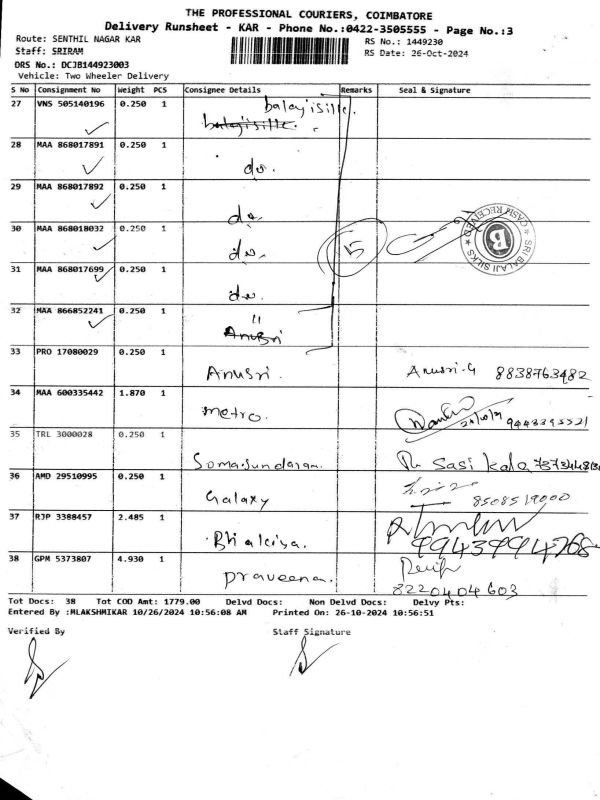 THE PROFESSIONAL COURIERS, COIMBATORE
Delivery Runsheet - KAR - Phone No.:0422-3505555 - Page No.:3
Route: SENTHIL NAGAR KAR
Staff: SRIRAM
DRS No.: DCJB144923003
Vehicle: Two Wheeler Delivery
RS No.: 1449230
RS Date: 26-Oct-2024
S No Consignment No Weight PCS Consignee Details Remarks Seal & Signature
27 VNS 505140196 0.250 1 balajisille.
balajisille.
28 MAA 868017891 0.250 1 do.
29 MAA 868017892 0.250 1 do
30 MAA 868018032 0.250 1 do.
15
SRI BALAJI SILKS
CASH RECEIVED
B
31 MAA 868017699 0.250 1 do.
32 MAA 866852241 0.250 1 "
Anusri
33 PRO 17080029 0.250 1 Anusri. Anusri-G 8838763482
34 MAA 600335442 1.870 1 metro.
35 TRL 3000028 0.250 1 Somasundaram. Sasi Kala
36 AMD 29510995 0.250 1 Galaxy 8508519000
37 RJP 3388457 2.485 1 Bhakiya. 9943994768
38 GPM 5373807 4.930 1 Praveena. 8220404603
Tot Docs: 38 Tot COD Amt: 1779.00 Delvd Docs: Non Delvd Docs: Delvy Pts:
Entered By :MLAKSHMIKAR 10/26/2024 10:56:08 AM Printed On: 26-10-2024 10:56:51
Verified By Staff Signature